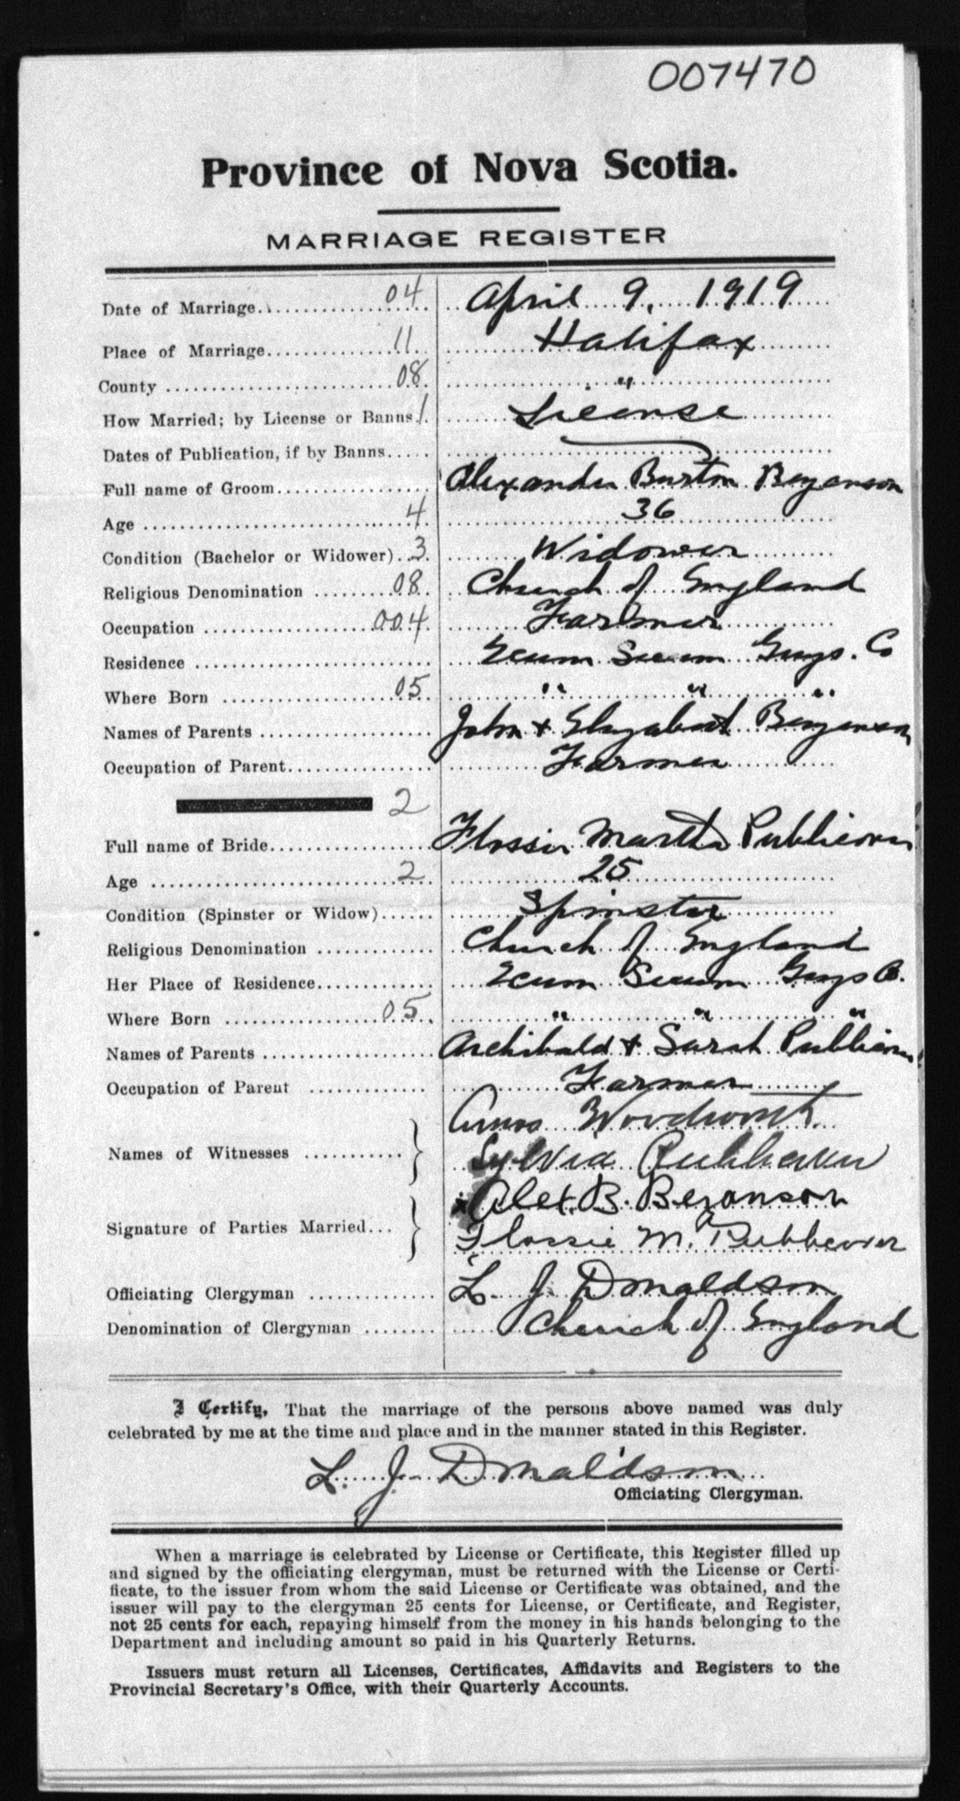 007470
Province of Nova Scotia.
MARRIAGE REGISTER
Date of Marriage 04 April 9, 1919
Place of Marriage 11 Halifax
County 08 "
How Married; by License or Banns 1 License
Dates of Publication, if by Banns
Full name of Groom Alexander Burton
Age 4 36
Condition (Bachelor or Widower) 3 Widower
Religious Denomination 08 Church of England
Occupation 004 Farmer
Residence Ecum Secum Guys. Co
Where Born 05 " " "
Names of Parents John + Elizabeth
Occupation of Parent Farmer
2
Full name of Bride Flossie Martha
Age 2 25
Condition (Spinster or Widow) Spinster
Religious Denomination Church of England
Her Place of Residence Ecum Secum Guys Co.
Where Born 05 " " "
Names of Parents Archibald + Sarah
Occupation of Parent Farmer
Amos Woodworth
Names of Witnesses } Sylvia
Alex B. Beyanson
Signature of Parties Married }
Flossie M.
Officiating Clergyman L. J. Donaldson
Denomination of Clergyman Church of England
I Certify, That the marriage of the persons above named was duly
celebrated by me at the time and place and in the manner stated in this Register.
L. J. Donaldson
Officiating Clergyman.
When a marriage is celebrated by License or Certificate, this Register filled up
and signed by the officiating clergyman, must be returned with the License or Certi-
ficate, to the issuer from whom the said License or Certificate was obtained, and the
issuer will pay to the clergyman 25 cents for License, or Certificate, and Register,
not 25 cents for each, repaying himself from the money in his hands belonging to the
Department and including amount so paid in his Quarterly Returns.
Issuers must return all Licenses, Certificates, Affidavits and Registers to the
Provincial Secretary's Office, with their Quarterly Accounts.